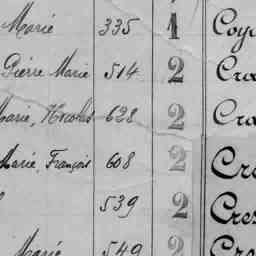 Marie 335 1
Pierre Marie 514 2
Marie, Nicolas 628 2
Marie, François 608 2
539 2
Marie 549 2